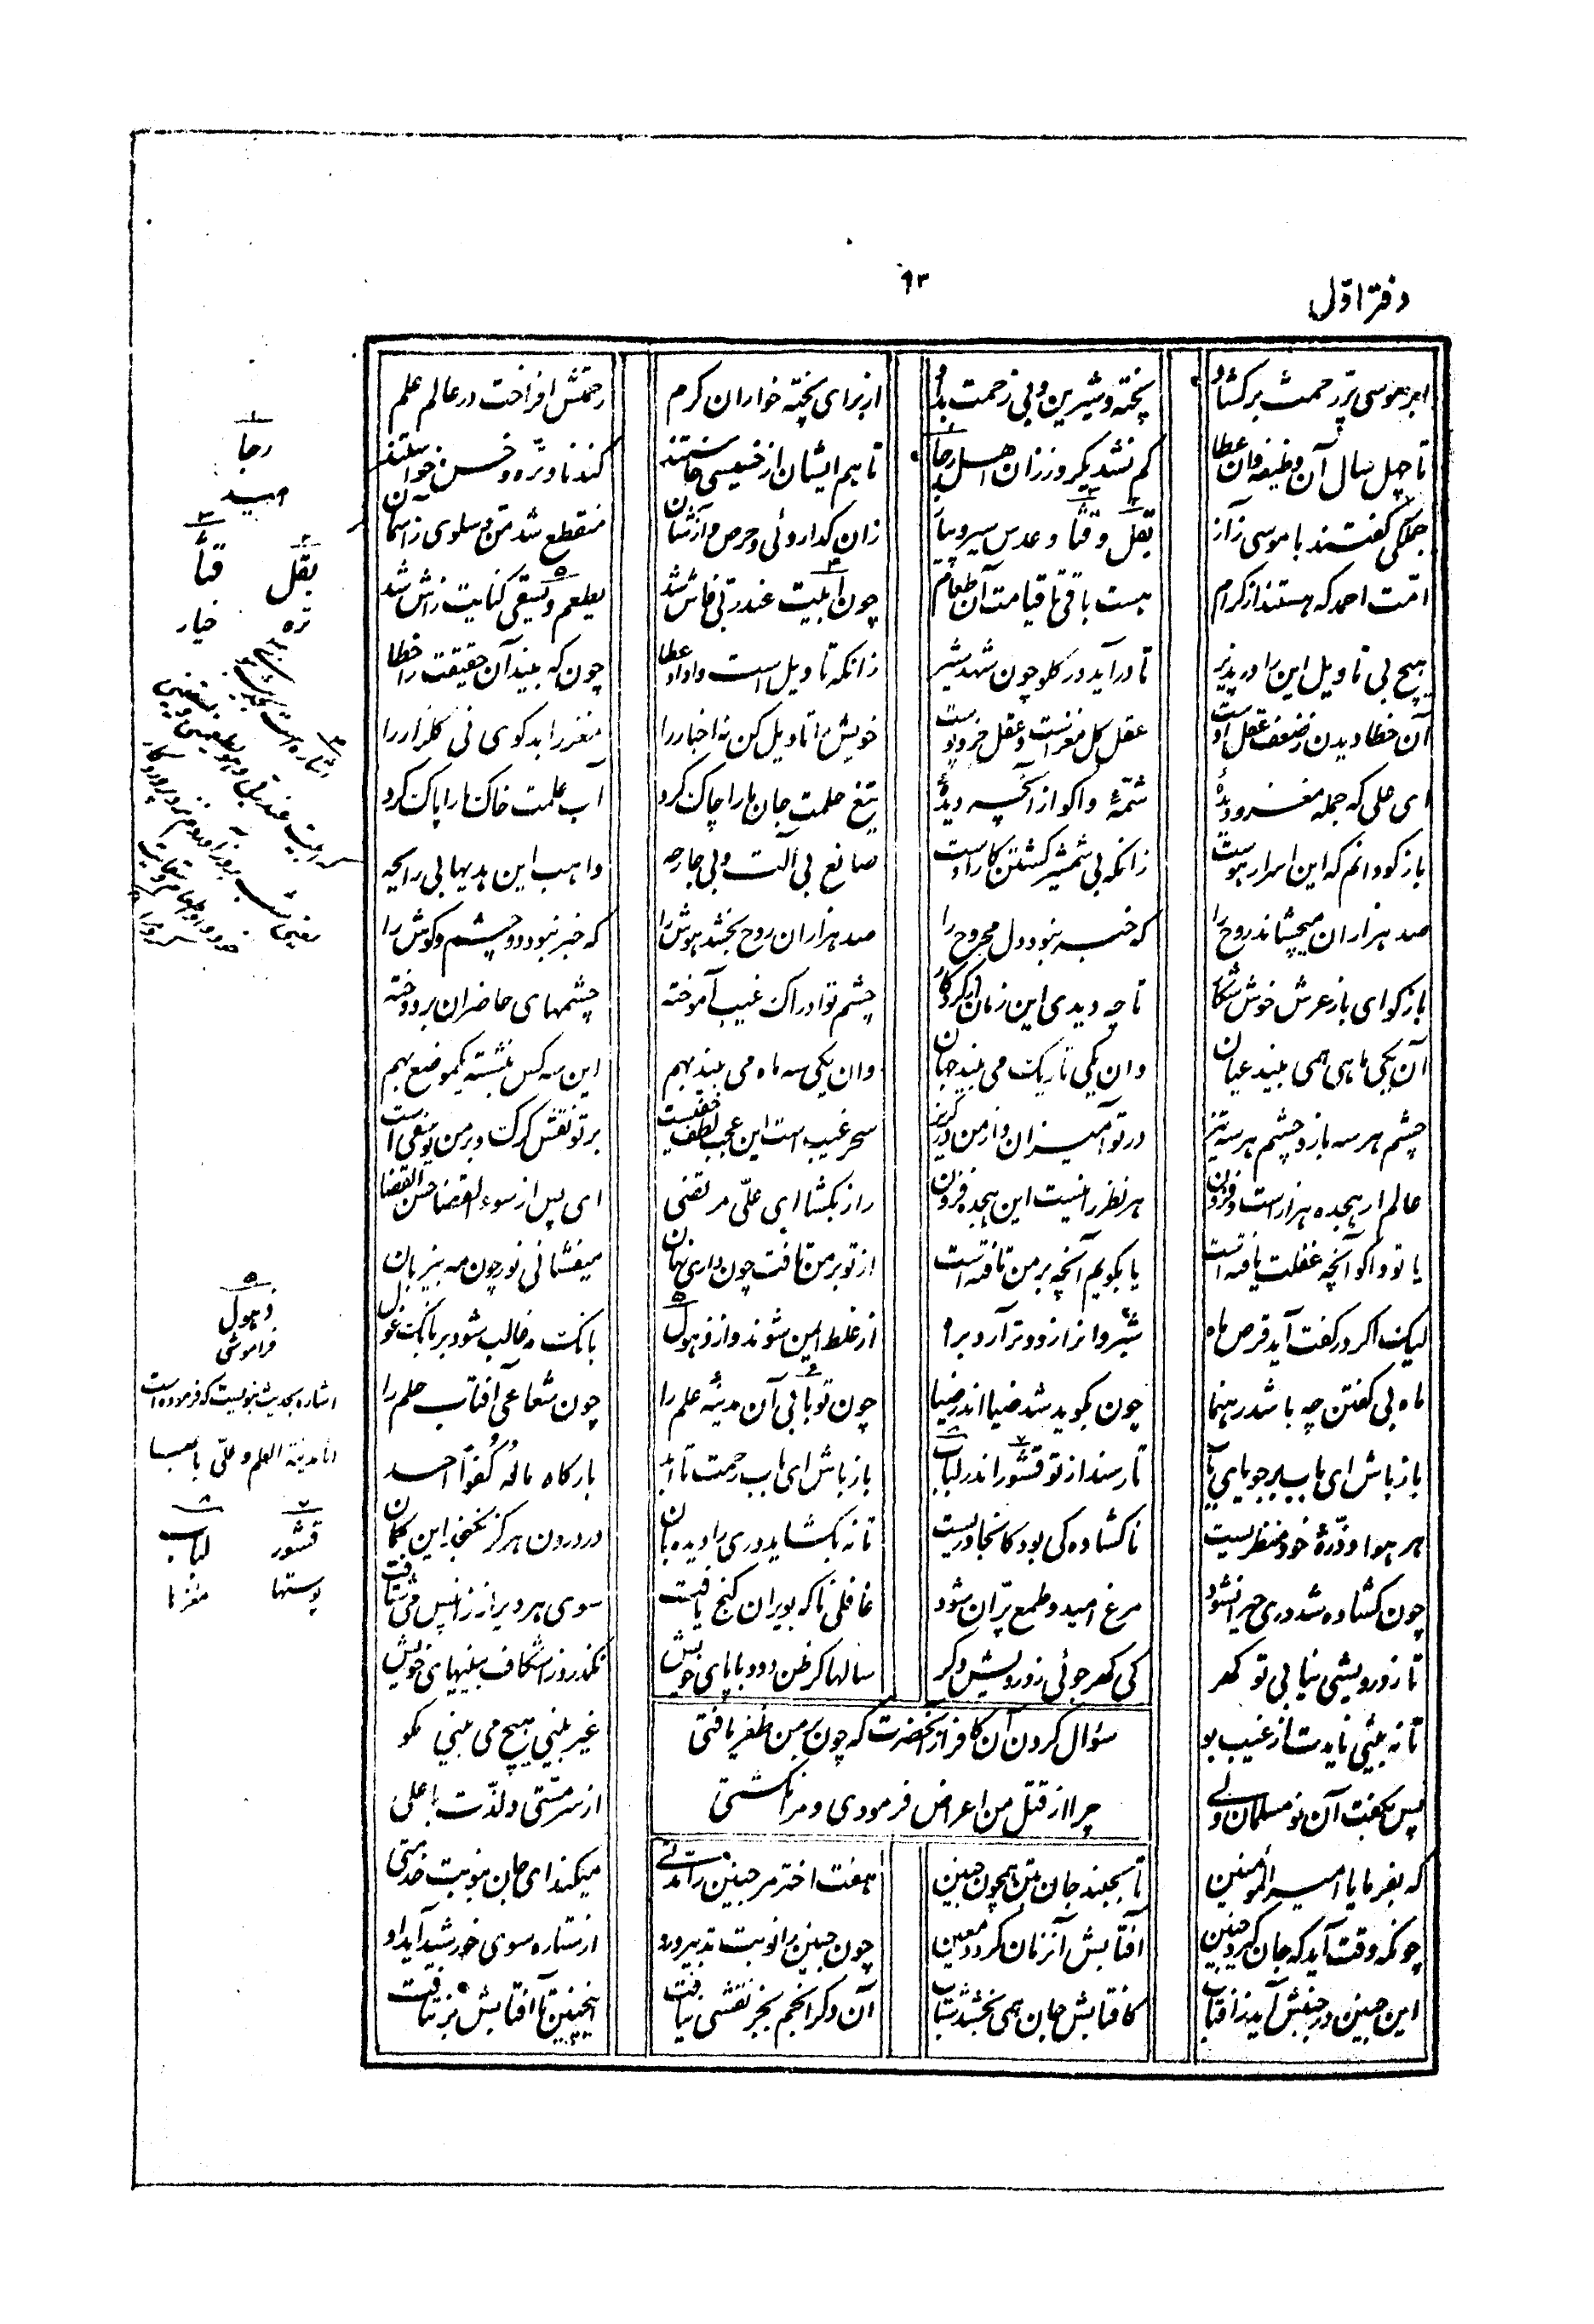 دفتر اوّل
۹۳
ابر موسی پرّ رحمت برکشاد پخته و شیرین و بی زحمت بداد
از برای پخته خواران کرم رحمتش افراخت در عالم علم
تا چل سال آن وظیفه وان عطا کم نشد یکروز زان اهل رجا
تا هم ایشان از خسیسی خاستند کندنا و ترّه و خس خواستند
جملگی گفتند با موسی ز آز بقل و قثّا و عدس سیر و پیاز
زان گدا روئی و حرص و آزشان منقطع شد منّ و سلوی ز آسمان
امّت احمد که هستند از کرام هست باقی تا قیامت آن طعام
چون ابیت عند ربّی فاش شد یطعم و یسقی کنایت ز آش شد
هیچ بی تاویل این را در پذیر تا در آید در گلو چون شهد و شیر
زانکه تاویل است واداد عطا چون که بیند آن حقیقت را خطا
آن خطا دیدن ز ضعف عقل اوست عقل کل مغزاست و عقل جزو پوست
خویش را تاویل کن نه اخبار را مغز را بد گوی نی گلزار را
ای علی که جمله مغز و دیدهٔ شمّهٔ واگو از آنچه دیدهٔ
تیغ حلمت جان ما را چاک کرد آب علمت خاک ما را پاک کرد
بازگو دانم که این اسرار هوست زانکه بی شمشیر کشتن کار اوست
صانع بی آلت و بی جارحه واهب این هدیهای رابحه
صد هزاران میچشاند روح را که خبر نبود دل مجروح را
صد هزاران روح بخشد هوش را که خبر نبود دو چشم و گوش را
باز گو ای باز عرش خوش شکار تا چه دیدی این زمان از کردگار
چشم تو ادراک غیب آموخته چشمهای حاضران بر دوخته
آن یکی ماهی همی بیند عیان وان یکی تاریک می بیند جهان
وان یکی سه ماه می بیند بهم این سه کس بنشسته یکموضع بهم
چشم هر سه باز و چشم هر سه تیز در تو آمیزان و از من در گریز
سحر غیب است این عجب لطف خفیست بر تو نقش گرگ و بر من یوسفی است
عالم ار هیجده هزار است و فزون هر نظر را نیست این هیجده فزون
راز بگشا ای علیّ مرتضی ای پس از سوء القضا حسن القضا
یا تو واگو آنچه عقلت یافته است یا بگویم آنچه بر من تافته است
از تو بر من تافت چون داری نهان میفشانی نور چون مه بی زبان
لیک اگر در گفت آید قرص ماه شبروان را زودتر آرد براه
از غلط ایمن شوند و از ذهول بانگ مه غالب شود بر بانگ غول
ماه بی گفتن چو باشد رهنما چون بگوید شد ضیا اندر ضیا
چون تو بابی آن مدینهٔ علم را چون شعاعی آفتاب حلم را
باز باش ای باب بر جویای باب تا رسند از تو قشور اندر لباب
باز باش ای باب رحمت تا ابد بارگاه ما له کفواً احد
هر هوا و ذرّهٔ خود منظریست ناگشاده کی بود کانجا دریست
تا نه بگشاید دری را دیده بان در درون هرگز نگنجد این گمان
چون گشاده شد دری حیران شود مرغ امید و طمع پرّان شود
غافلی ناگه بویران گنج یافت سوی هر ویران زان پس می شتافت
تا ز درویشی نیابی تو گهر کی گهر جوئی ز درویش دگر
سالها گر ظن دود با پای خویش نگذرد ز اشکاف بینیهای خویش
تا نه بینی نایدت از غیب بو غیر بینی هیچ می بینی بگو
سؤال کردن آن کافر از آنحضرت که چون بر من ظفر یافتی
چرا از قتل من اعراض فرمودی و مرا نکشتی
پس بگفت آن نو مسلمان ولی از سر مستی و لذّت با علی
که بفرما یا امیر المؤمنین تا بجنبد جان بتن همچون جنین
هفت اختر مر جنین را مدتی میکنند ای جان بنوبت خدمتی
چونکه وقت آید که جان گیرد جنین آفتابش آنزمان گردد معین
چون جنین را نوبت تدبیر رو از ستاره سوی خورشید آید او
این جنین در جنبش آید ز آفتاب کافتابش جان همی بخشد شتاب
آن دگر انجم بجز نقشی نیافت اینجنین تا آفتابش بر نتافت
۱
رجا
امید
۲
بقل
تره
۳
قثأ
خیار
۵
ذهول
فراموشی
اشاره بحدیث نبویست که فرموده است
انا مدینة العلم و علیّ بابها
۷
قشور
پوستها
۸
لباب
مغزها